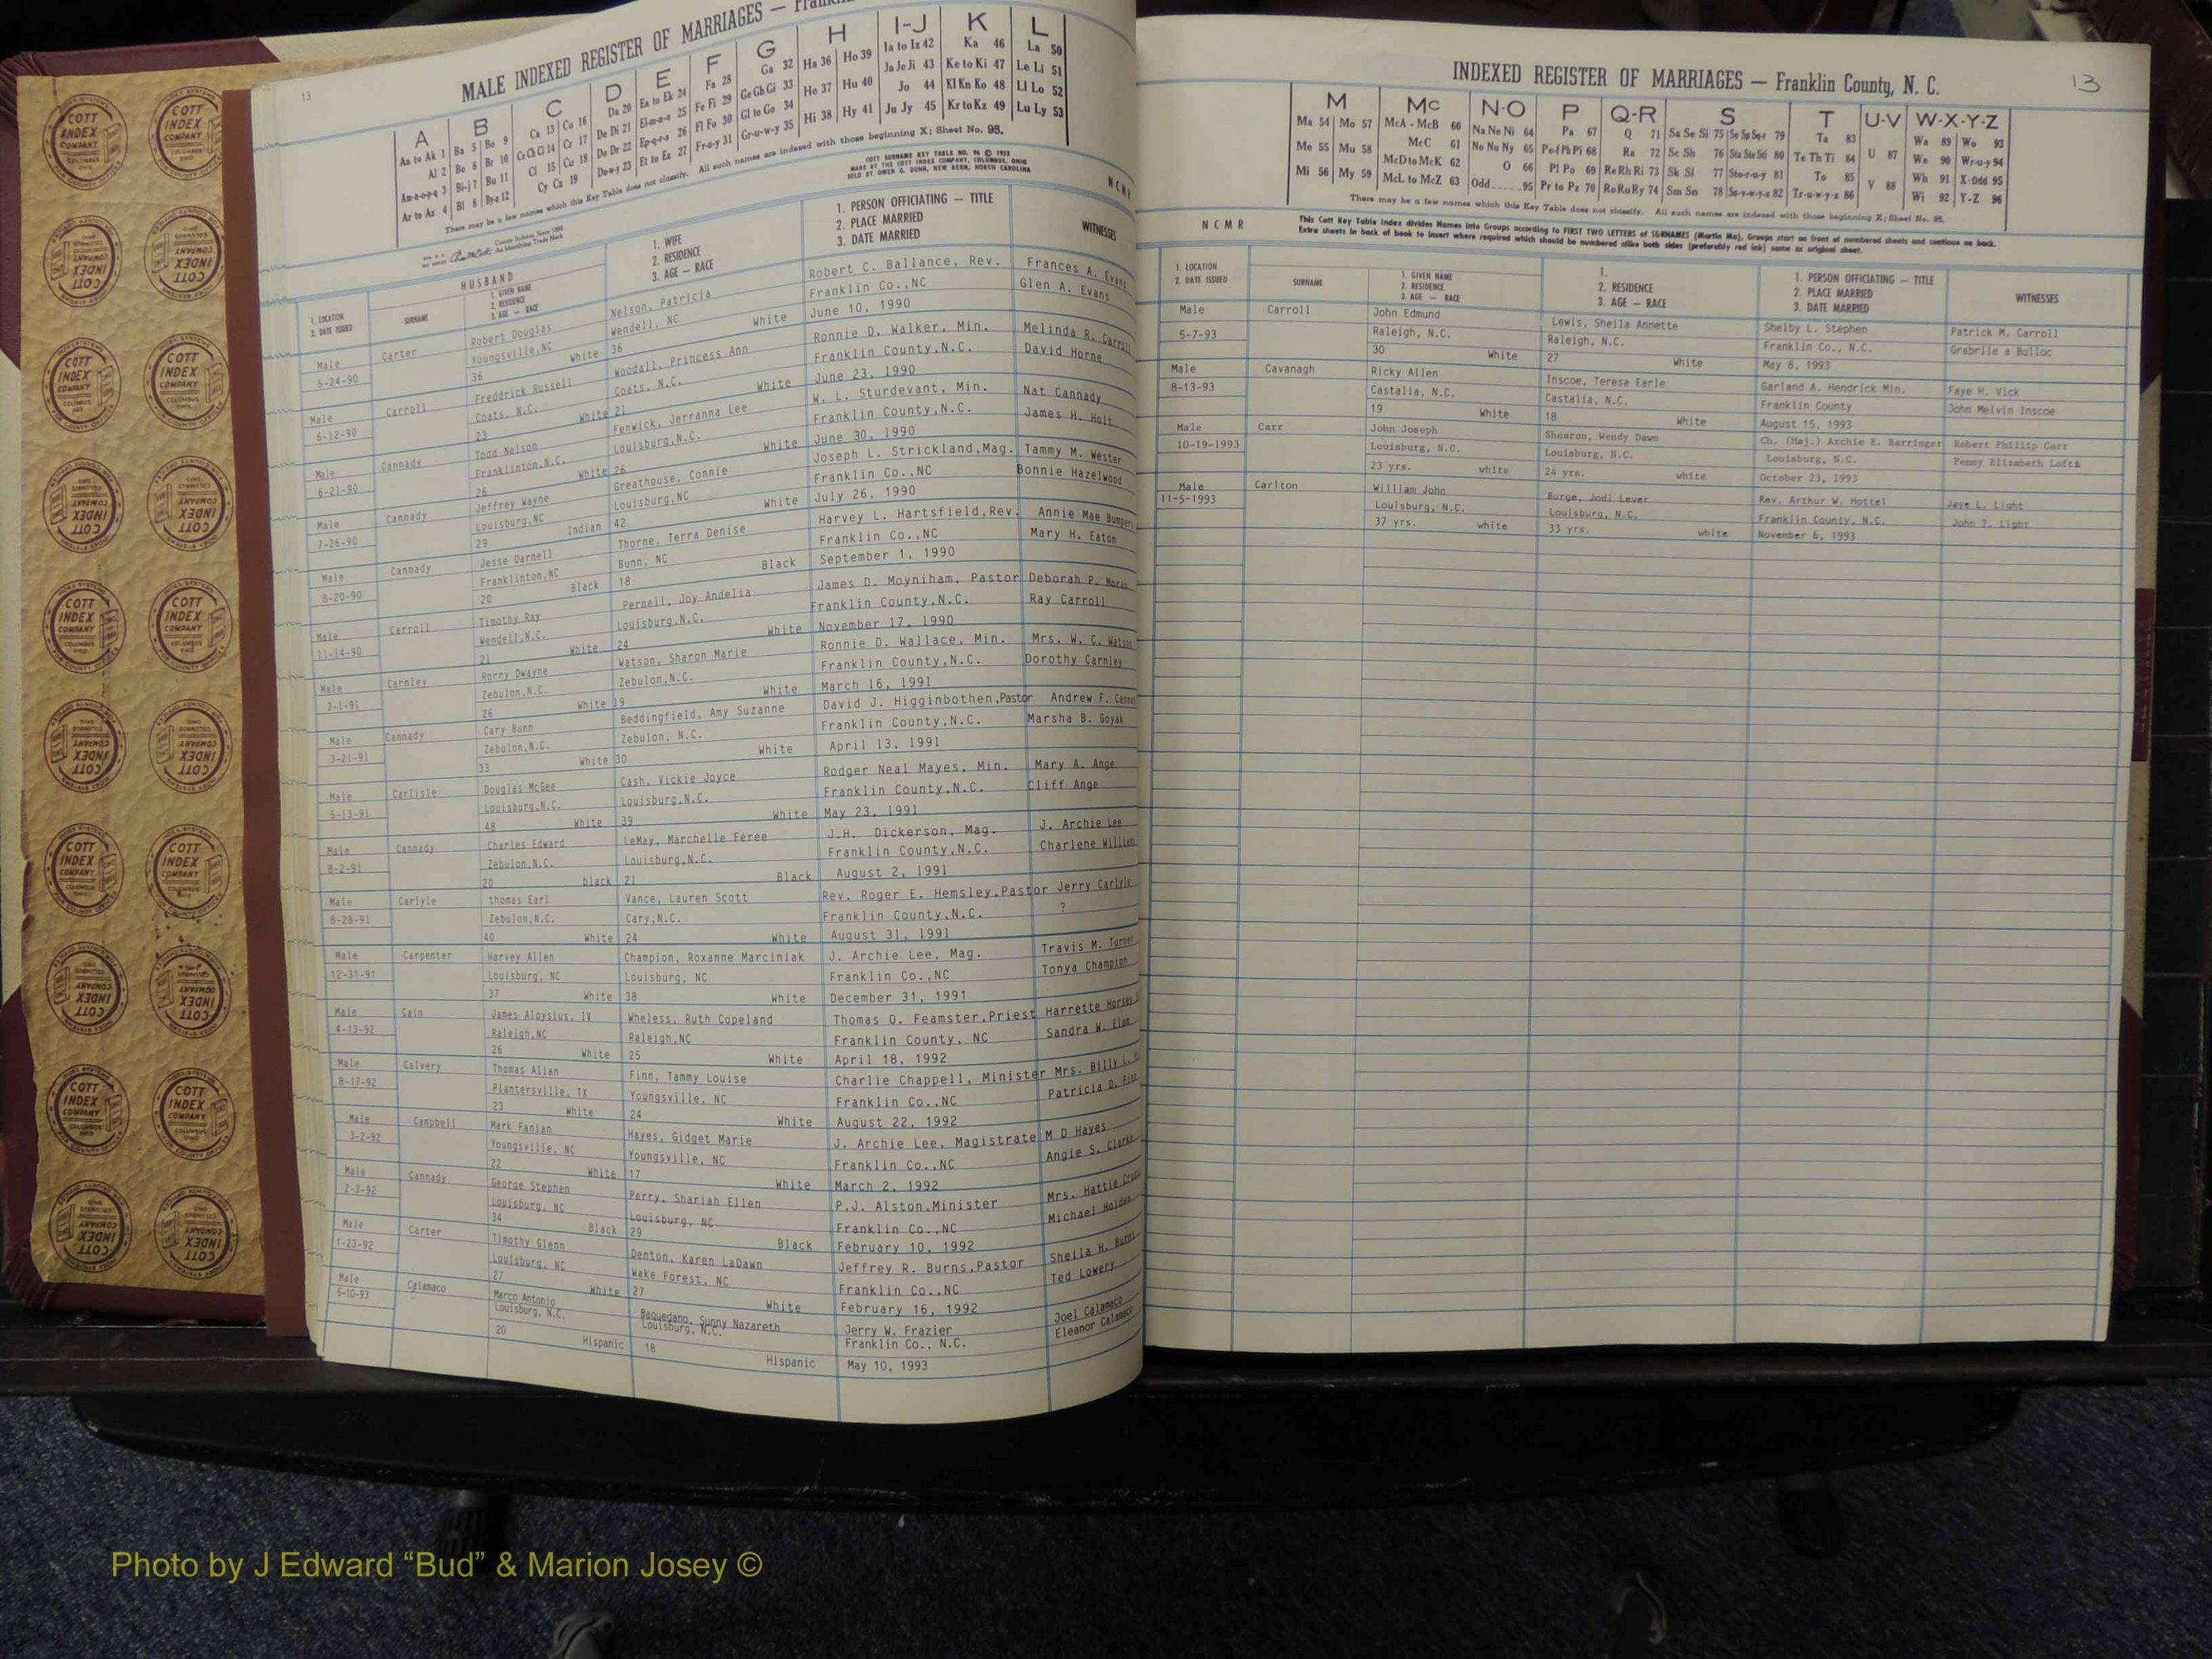 13
MALE INDEXED REGISTER OF MARRIAGES —
A B C D E F G H I-J K L
Aa to Ak 1 Ba 5 Bo 9 Ca 13 Co 16 Da 20 Ea to Ek 24 Fa 28 Ga 32 Ha 36 Ho 39 Ia to Iz 42 Ka 46 La 50
Al 2 Be 6 Br 10 Ce Ch Ci 14 Cr 17 De Di 21 El-m-n-o 25 Fe Fi 29 Ge Gh Gi 33 He 37 Hu 40 Ja Je Ji 43 Ke to Ki 47 Le Li 51
Am-n-o-p-q 3 Bi-j 7 Bu 11 Cl 15 Cu 18 Do Dr 22 Ep-q-r-s 26 Fl Fo 30 Gl to Go 34 Hi 38 Hy 41 Jo 44 Kl Kn Ko 48 Ll Lo 52
Ar to Az 4 Bl 8 By-z 12 Cy Cz 19 Du-w-y 23 Et to Ez 27 Fr-u-y 31 Gr-u-w-y 35 Ju Jy 45 Kr to Kz 49 Lu Ly 53
There may be a few names which this Key Table does not classify. All such names are indexed with those beginning X; Sheet No. 95.
COTT SURNAME KEY TABLE NO. 96 © 1952
MADE BY THE COTT INDEX COMPANY, COLUMBUS, OHIO
SOLD BY OWEN G. DUNN, NEW BERN, NORTH CAROLINA
N C M R
HUSBAND
1. LOCATION
2. DATE ISSUED
SURNAME
1. GIVEN NAME
2. RESIDENCE
3. AGE — RACE
1. WIFE
2. RESIDENCE
3. AGE — RACE
1. PERSON OFFICIATING — TITLE
2. PLACE MARRIED
3. DATE MARRIED
WITNESSES
Male Carter Robert Douglas Nelson, Patricia Robert C. Ballance, Rev. Frances A. Evans
5-24-90 Youngsville,NC Wendell, NC Franklin Co.,NC Glen A. Evans
36 White 36 White June 10, 1990
Male Carroll Freddrick Russell Woodall, Princess Ann Ronnie D. Walker, Min. Melinda R. Carroll
6-12-90 Coats, N.C. Coats, N.C. Franklin County,N.C. David Horne
23 White 21 White June 23, 1990
Male Cannady Todd Nelson Fenwick, Jerranna Lee W. L. Sturdevant, Min. Nat Cannady
6-21-90 Franklinton,N.C. Louisburg,N.C. Franklin County,N.C. James H. Holt
26 White 26 White June 30, 1990
Male Cannady Jeffrey Wayne Greathouse, Connie Joseph L. Strickland,Mag. Tammy M. Wester
7-26-90 Louisburg,NC Louisburg,NC Franklin Co.,NC Bonnie Hazelwood
29 Indian 42 White July 26, 1990
Male Cannady Jesse Darnell Thorne, Terra Denise Harvey L. Hartsfield,Rev. Annie Mae Bumpers
8-20-90 Franklinton,NC Bunn, NC Franklin Co.,NC Mary H. Eaton
20 Black 18 Black September 1, 1990
Male Carroll Timothy Ray Pernell, Joy Andelia James D. Moyniham, Pastor Deborah P.
11-14-90 Wendell,N.C. Louisburg,N.C. Franklin County,N.C. Ray Carroll
21 White 24 White November 17, 1990
Male Carnley Rorry Dwayne Watson, Sharon Marie Ronnie D. Wallace, Min. Mrs. W. C. Watson
3-1-91 Zebulon,N.C. Zebulon,N.C. Franklin County,N.C. Dorothy Carnley
26 White 19 White March 16, 1991
Male Cannady Cary Bunn Beddingfield, Amy Suzanne David J. Higginbothen,Pastor Andrew F.
3-21-91 Zebulon,N.C. Zebulon, N.C. Franklin County,N.C. Marsha B. Goyak
33 White 30 White April 13, 1991
Male Carlisle Douglas McGee Cash, Vickie Joyce Rodger Neal Mayes, Min. Mary A. Ange
5-13-91 Louisburg,N.C. Louisburg,N.C. Franklin County,N.C. Cliff Ange
48 White 39 White May 23, 1991
Male Cannady Charles Edward LeMay, Marchelle Feree J.H. Dickerson, Mag. J. Archie Lee
8-2-91 Zebulon,N.C. Louisburg,N.C. Franklin County,N.C. Charlene
20 black 21 Black August 2, 1991
Male Carlyle thomas Earl Vance, Lauren Scott Rev. Roger E. Hemsley,Pastor Jerry Carlyle
8-28-91 Zebulon,N.C. Cary,N.C. Franklin County,N.C. ?
40 White 24 White August 31, 1991
Male Carpenter Harvey Allen Champion, Roxanne Marciniak J. Archie Lee, Mag. Travis M. Turner
12-31-91 Louisburg, NC Louisburg, NC Franklin Co.,NC Tonya Champion
37 White 38 White December 31, 1991
Male Cain James Aloysius, IV Wheless, Ruth Copeland Thomas O. Feamster,Priest Harrette
4-13-92 Raleigh,NC Raleigh,NC Franklin County, NC Sandra W.
26 White 25 White April 18, 1992
Male Calvery Thomas Allan Finn, Tammy Louise Charlie Chappell, Minister Mrs. Billy L.
8-17-92 Plantersville, TX Youngsville, NC Franklin Co.,NC Patricia D.
23 White 24 White August 22, 1992
Male Campbell Mark Fanian Hayes, Gidget Marie J. Archie Lee, Magistrate M D Hayes
3-2-92 Youngsville, NC Youngsville, NC Franklin Co.,NC Angie S. Clarke
22 White 17 White March 2, 1992
Male Cannady George Stephen Perry, Shariah Ellen P.J. Alston,Minister Mrs. Hattie
2-3-92 Louisburg, NC Louisburg, NC Franklin Co.,NC Michael Holden
34 Black 29 Black February 10, 1992
Male Carter Timothy Glenn Denton, Karen LaDawn Jeffrey R. Burns,Pastor Sheila H.
1-23-92 Louisburg, NC Wake Forest, NC Franklin Co.,NC Ted Lowery
27 White 27 White February 16, 1992
Male Calamaco Marco Antonio Baquedano, Sunny Nazareth Jerry W. Frazier Joel Calamaco
5-10-93 Louisburg, N.C. Louisburg, N.C. Franklin Co., N.C. Eleanor Calamaco
20 Hispanic 18 Hispanic May 10, 1993
INDEXED REGISTER OF MARRIAGES — Franklin County, N. C.
13
M Mc N-O P Q-R S T U-V W-X-Y-Z
Ma 54 Mo 57 McA - McB 60 Na Ne Ni 64 Pa 67 Q 71 Sa Se Si 75 So Sp Sq-r 79 Ta 83 U 87 Wa 89 Wo 93
Me 55 Mu 58 McC 61 No Nu Ny 65 Pe-f Ph Pi 68 Ra 72 Sc Sh 76 Sta Ste Sti 80 Te Th Ti 84 V 88 We 90 Wr-u-y 94
Mi 56 My 59 McD to McK 62 O 66 Pl Po 69 Re Rh Ri 73 Sk Sl 77 Sto-r-u-y 81 To 85 Wh 91 X-Odd 95
McL to McZ 63 Odd 95 Pr to Pz 70 Ro Ru Ry 74 Sm Sn 78 Su-v-w-y-z 82 Tr-u-w-y-z 86 Wi 92 Y-Z 96
There may be a few names which this Key Table does not classify. All such names are indexed with those beginning X; Sheet No. 95.
N C M R
This Cott Key Table Index divides Names into Groups according to FIRST TWO LETTERS of SURNAMES (Martin Ma), Groups start on front of numbered sheets and continue on back.
Extra sheets in back of book to insert where required which should be numbered alike both sides (preferably red ink) same as original sheet.
1. LOCATION
2. DATE ISSUED
SURNAME
1. GIVEN NAME
2. RESIDENCE
3. AGE — RACE
1.
2. RESIDENCE
3. AGE — RACE
1. PERSON OFFICIATING — TITLE
2. PLACE MARRIED
3. DATE MARRIED
WITNESSES
Male Carroll John Edmund Lewis, Sheila Annette Shelby L. Stephen Patrick M. Carroll
5-7-93 Raleigh, N.C. Raleigh, N.C. Franklin Co., N.C. Grabrile a Bulloc
30 White 27 White May 8, 1993
Male Cavanagh Ricky Allen Inscoe, Teresa Earle Garland A. Hendrick Min. Faye H. Vick
8-13-93 Castalia, N.C. Castalia, N.C. Franklin County John Melvin Inscoe
19 White 18 White August 15, 1993
Male Carr John Joseph Shearon, Wendy Dawn Ch. (Maj.) Archie E. Barringer Robert Phillip Carr
10-19-1993 Louisburg, N.C. Louisburg, N.C. Louisburg, N.C. Penny Elizabeth Loftis
23 yrs. white 24 yrs. white October 23, 1993
Male Carlton William John Burge, Jodi Lever Rev. Arthur W. Hottel Jaye L. Light
11-5-1993 Louisburg, N.C. Louisburg, N.C. Franklin County, N.C. John T. Light
37 yrs. white 33 yrs. white November 6, 1993
COTT INDEX COMPANY COLUMBUS OHIO
Photo by J Edward “Bud” & Marion Josey ©